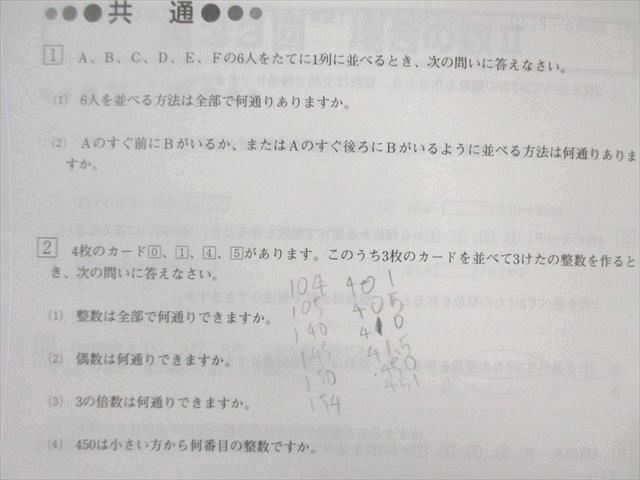 ●●●共 通●●●
1 A、B、C、D、E、Fの6人をたてに1列に並べるとき、次の問いに答えなさい。
(1) 6人を並べる方法は全部で何通りありますか。
(2) Aのすぐ前にBがいるか、またはAのすぐ後ろにBがいるように並べる方法は何通りありま
すか。
2 4枚のカード0、1、4、5があります。このうち3枚のカードを並べて3けたの整数を作ると
き、次の問いに答えなさい。
104 401
(1) 整数は全部で何通りできますか。
105 405
140 410
(2) 偶数は何通りできますか。
145 415
150 450
(3) 3の倍数は何通りできますか。
154 451
(4) 450は小さい方から何番目の整数ですか。